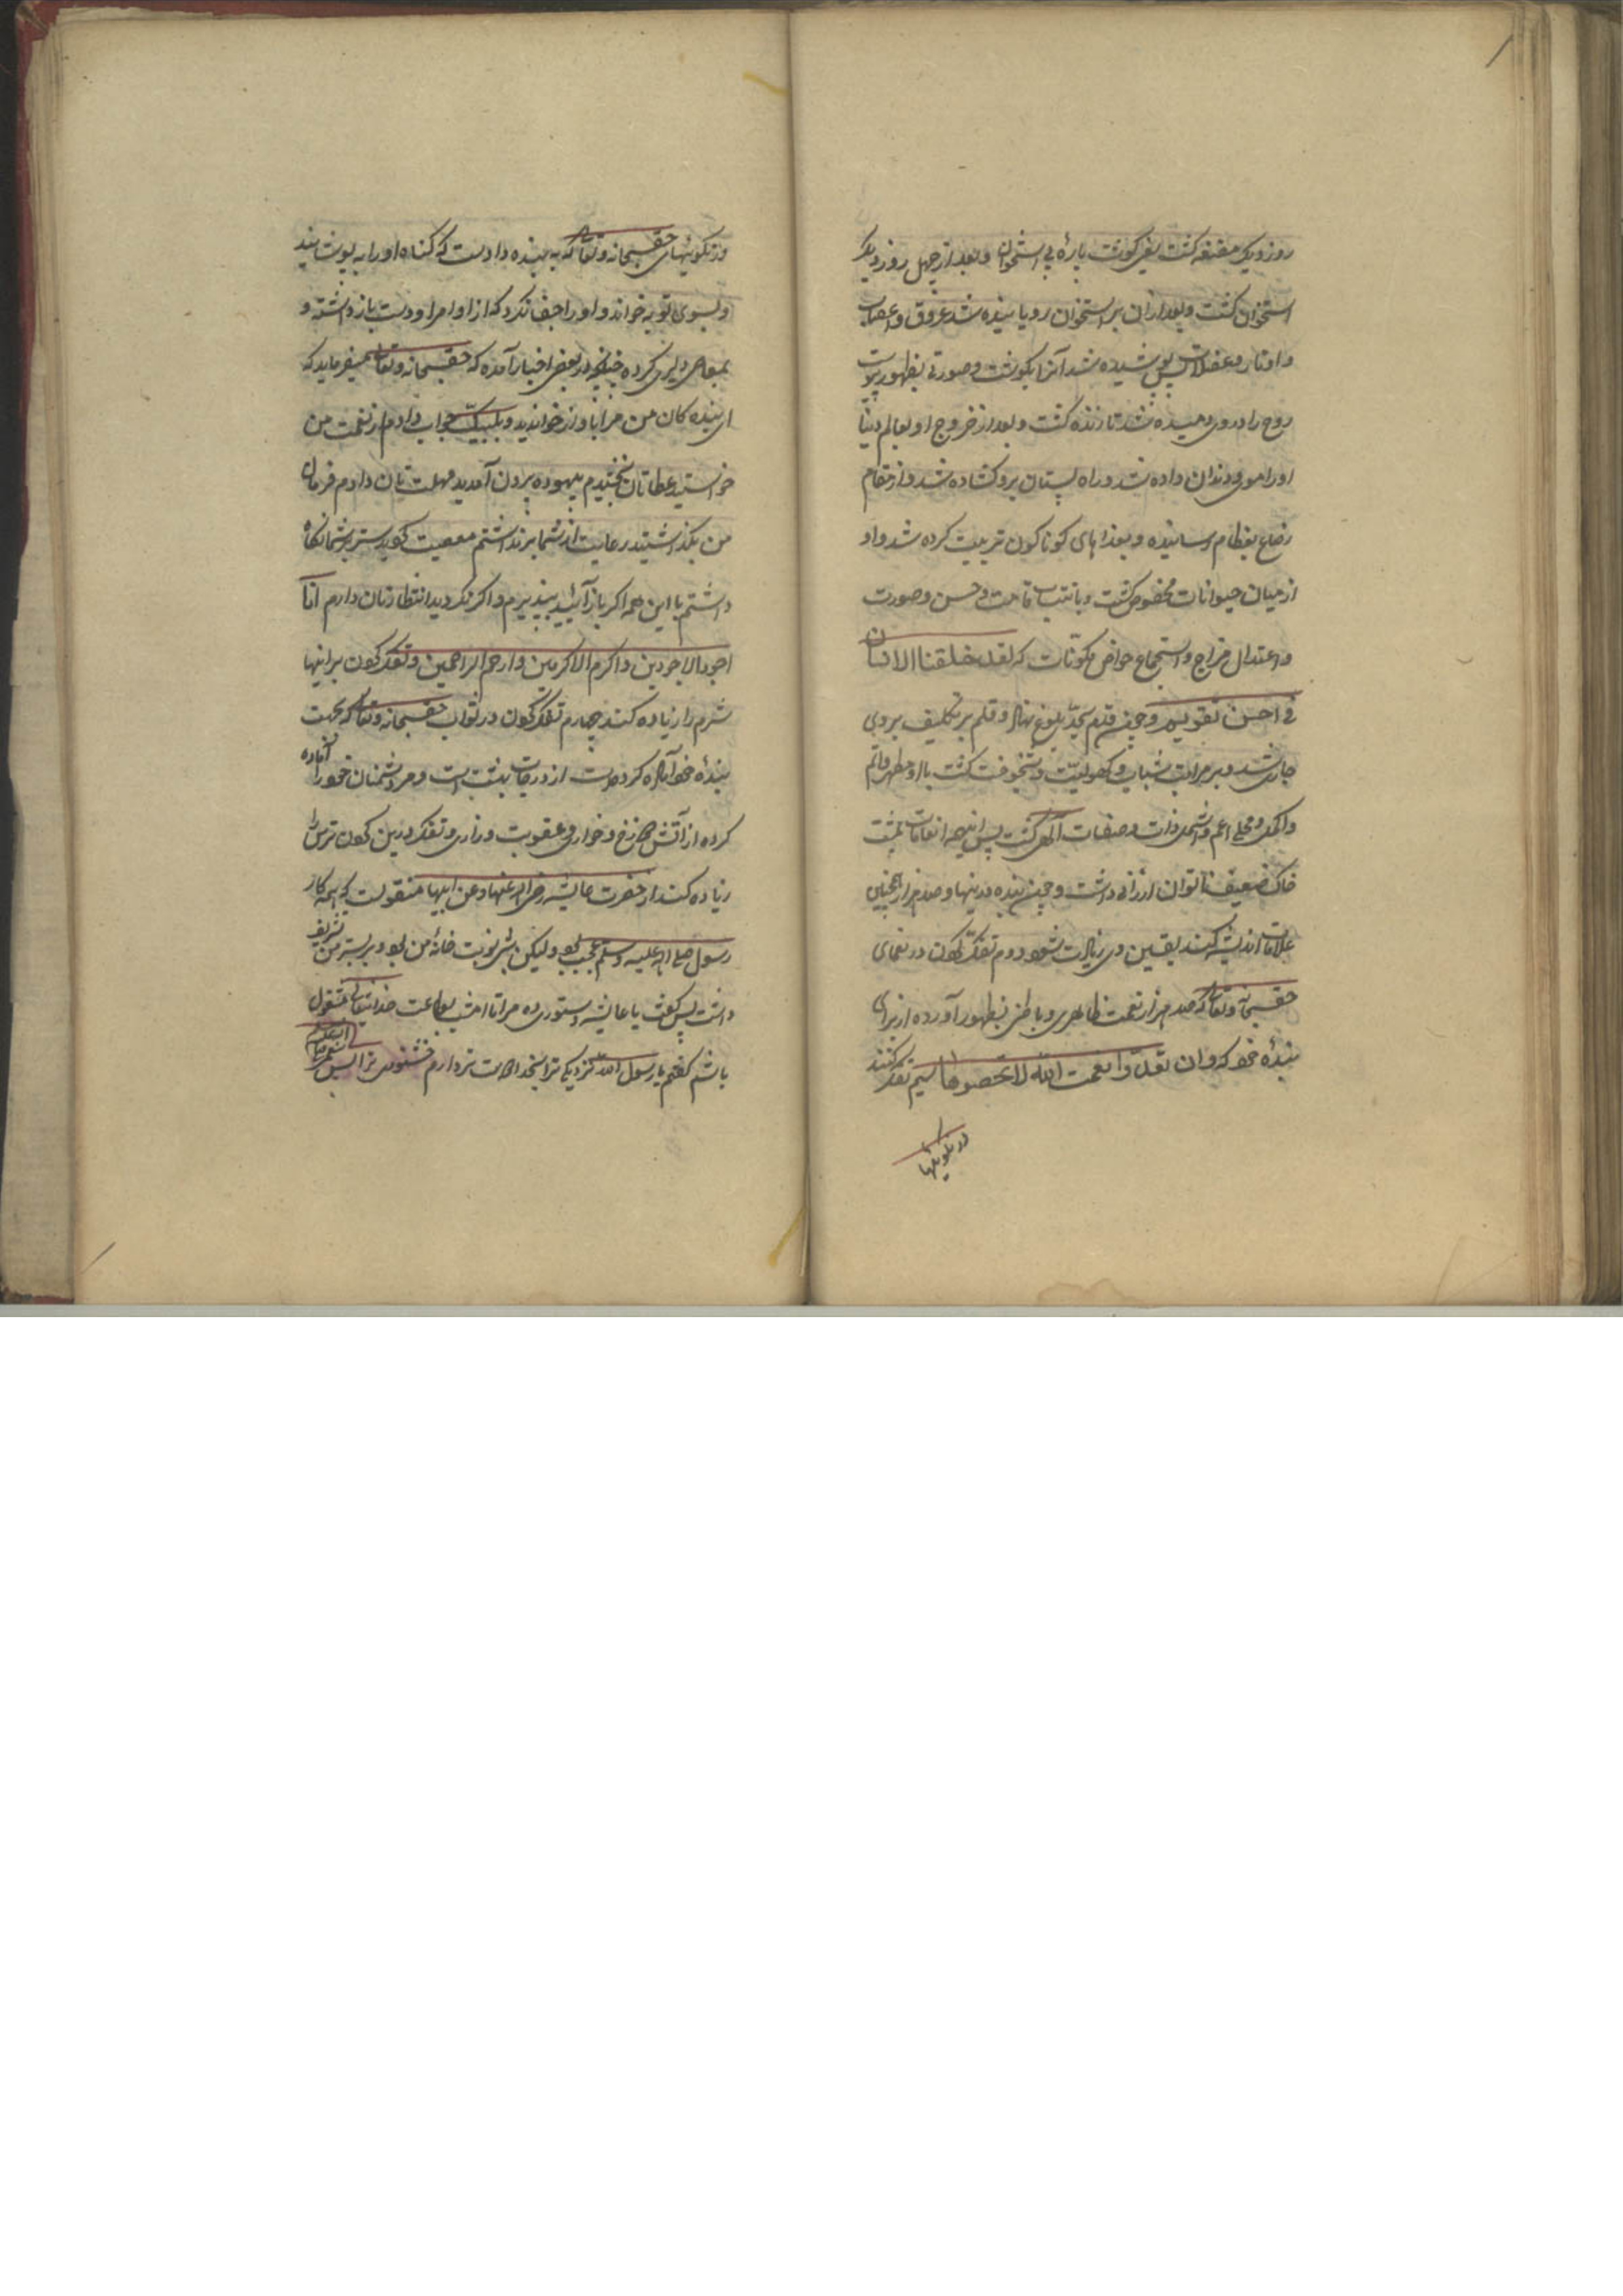 روز دیکر مضغه کشت یعنی کوشت پارهٔ بی استخوان و بعد از چهل روز دیکر
استخوان کشت و بعد ازان بر استخوان رویانیده شد عروق و اعصاب
و اوتار و عضلات پس پوشیده شد آنرا بکوشت و صورتی بظهور پیوست
روح را در وی دمیده شد تا زنده کشت و بعد از خروج او بعالم دنیا
او را موی و دندان داده شد و راه پستان برو کشاده شد و از مقام
رضاع بفطام رسانیده و بغذاهای کوناکون تربیت کرده شد و او
از میان حیوانات مخصوص کشت و بانتصاب قامت و حسن و صورت
و اعتدال مزاج و استجماع خواص مکونات که لقد خلقنا الانسان
فی احسن تقویم و چون قدم بحد بلوغ نهاد و قلم تکلیف بروی
جاری شد و بر مراتب شباب و کهولیت و شیخوخت کشت
و اکمل و مجلی اعم و اشمل ذات و صفات الهی کشت پس اینهمه انعامات بمشت
خاک ضعیف ناتوان ارزانی داشت و چون بنده بدینها و صد هزار همچنین
علامات اندیشه کند یقین وی زیادت شود دوم تفکر کردن در نعمای
حقسبحانه وتعالی که صد هزار نعمت ظاهری و باطنی بظهور آورده از برای
بندهٔ خود که وان تعدوا نعمت الله لا تحصوها سیم تفکر کنند
در نکوئیها
در نکوئیهای حقسبحانه وتعالی که به بنده دادست که کناه او را به پوشانید
و بسوی توبه خواند و او را جفا نکرد که از اوامر او دست باز داشته و
بمعاصی دلیری کرده چنانچه در بعض اخبار آمده که حقسبحانه وتعالی میفرماید که
ای بنده کان من مرا بآواز خواندید و بلبیک جواب دادم از نعمت من
خواستید عطاتان بخشیدم بیهوده برون آمدید مهلت تان دادم فرمان
من بکذاشتید رعایت از شما برنداشتم معصیت کردید ستر بر شما نکاه
داشتم با این همه اکر باز آئید بپذیرم و اکر نکردید انتظارتان دارم انا
اجود الاجودین و اکرم الاکرمین و ارحم الراحمین و تفکر کردن بر اینها
شرم را زیاده کند چهارم تفکر کردن در ثواب حقسبحانه وتعالی که بجهت
بندهٔ خود آماده کرده است از درجات بهشت است و مر دشمنان خود را آماده
کرده از آتش دوزخ و خواری و عقوبت و زاری و تفکر درین کردن ترس را
زیاده کند از حضرت عایشه رضی الله عنها و عن ابیها منقولست که همه کار
رسول صلی الله علیه وسلم عجب بود ولیکن شبی نوبت خانهٔ من بود و بر بستر من تشریف
داشت پس کفت یا عایشه دستوری ده مرا تا امشب بطاعت خدایتعالی مشغول
باشم کفتم یا رسول الله نزدیکی ترا میخواهم دوست تر دارم خشنودی ترا پس